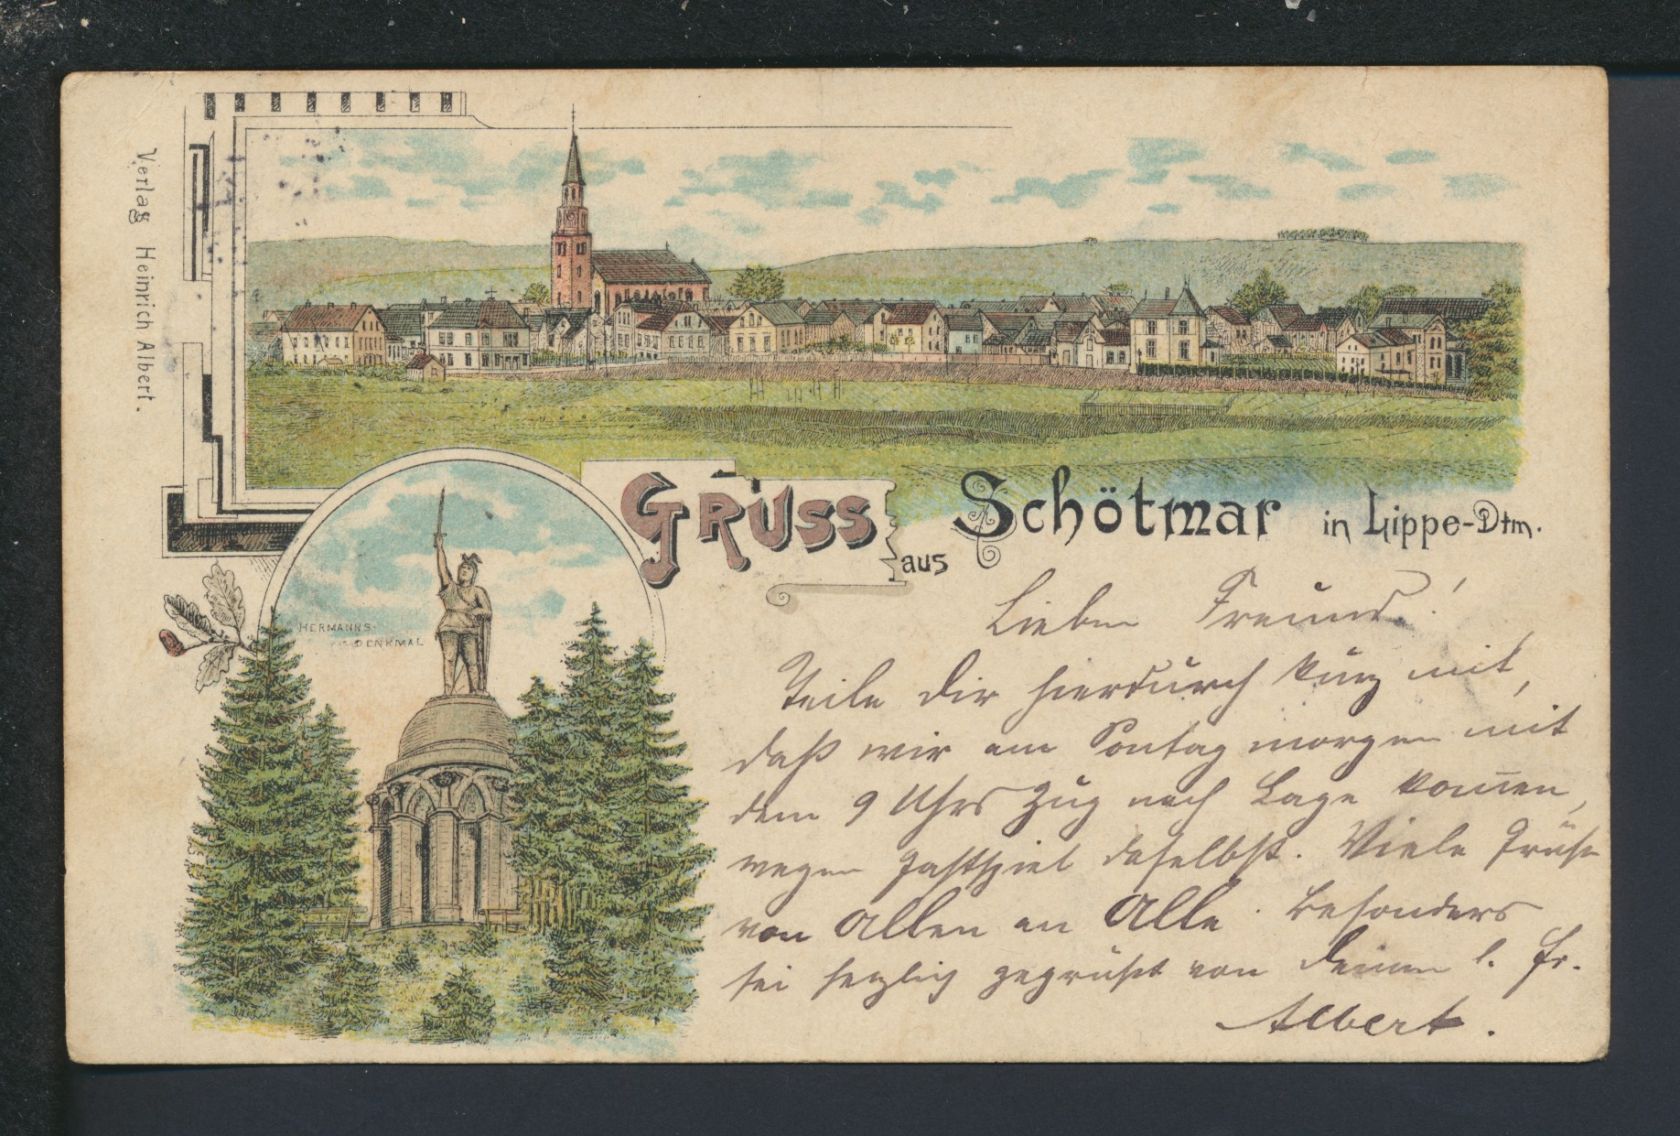 Verlag Heinrich Albert.
GRUSS
aus
Schötmar in Lippe-Dtm.
HERMANNS-
DENKMAL
Lieber Freund!
Teile Dir hierdurch kurz mit,
daß wir am Sontag morgen mit
dem 9 Uhrs Zug nach Lage kom̄en,
wegen Gastspiel daselbst. Viele Grüße
von Allen an Alle. Besonders
sei herzlich gegrüßt von Deinem l. Fr.
Albert.